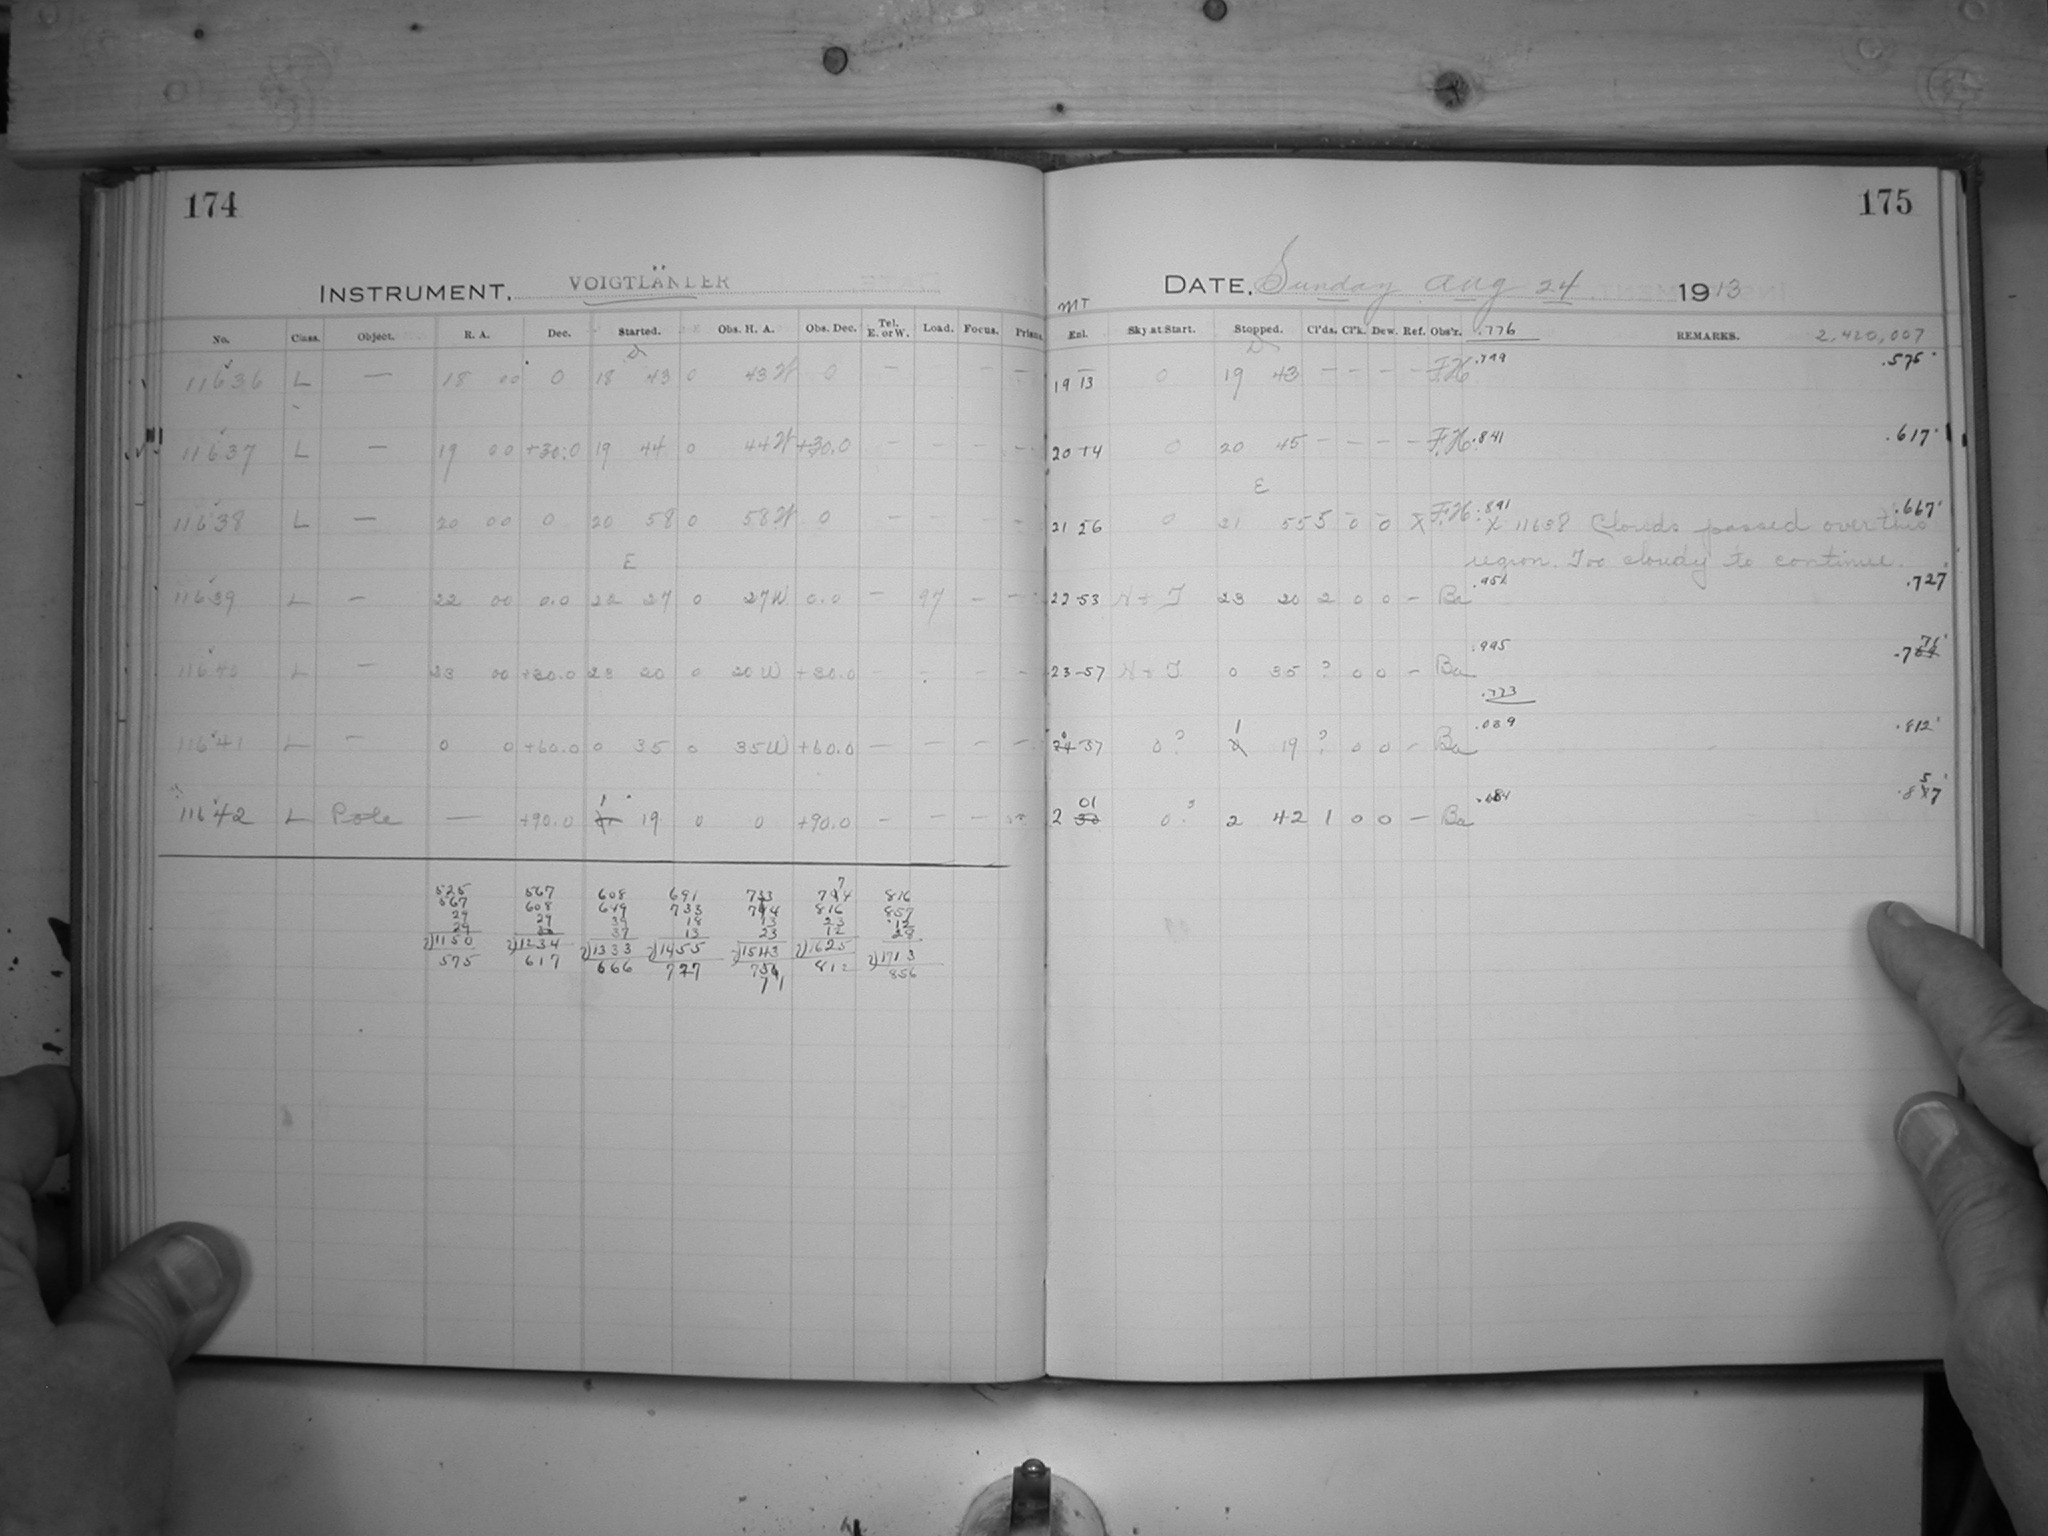 174
175
INSTRUMENT, VOIGTLÄNDER
DATE, Sunday Aug 24 1913
No. Class. Object. R. A. Dec. Started. Obs. H. A. Obs. Dec. Tel. E. or W. Load. Focus. Prism.
MT
Exl. Sky at Start. Stopped. Cl'ds. Cl'k. Dew. Ref. Obs'r. .776 REMARKS. 2,420,007
11636 L — 18 00 0 18 43 0 43W 0 — — — —
19 13 0 19 43 — — — — F.H. .799 .575
11637 L — 19 00 +30.0 19 44 0 44W +30.0 — — — —
20 14 0 20 45 — — — — F.H. .841 .617
E
11638 L — 20 00 0 20 58 0 58W 0 — — — —
21 26 0 21 55 5 0 0 X F.H. .891 X 11638 Clouds passed over this .667
region. Too cloudy to continue.
E
11639 L — 22 00 0.0 22 27 0 27W 0.0 — 97 — —
22 53 23 20 2 0 0 — Ba .727
11640 L — 23 00 +30.0 23 20 0 20W +30.0 — — — —
23-57 0 35 ? 0 0 — Ba .995
.773
11641 L — 0 0 +60.0 0 35 0 35W +60.0 — — — —
0 ? 1 19 ? 0 0 — Ba .039 .812
11642 L Pole — +90.0 1 19 0 0 +90.0 — — —
2 01 0 ? 2 42 1 0 0 — Ba .857
525 567 608 691 733 774 816
567 608 649 733 774 816 857
29 29 39 18 13 23 12
29 37 13 23 12 28
2)1150 2)1234 2)1333 2)1455 2)1543 2)1625 2)1713
575 617 666 727 771 812 856